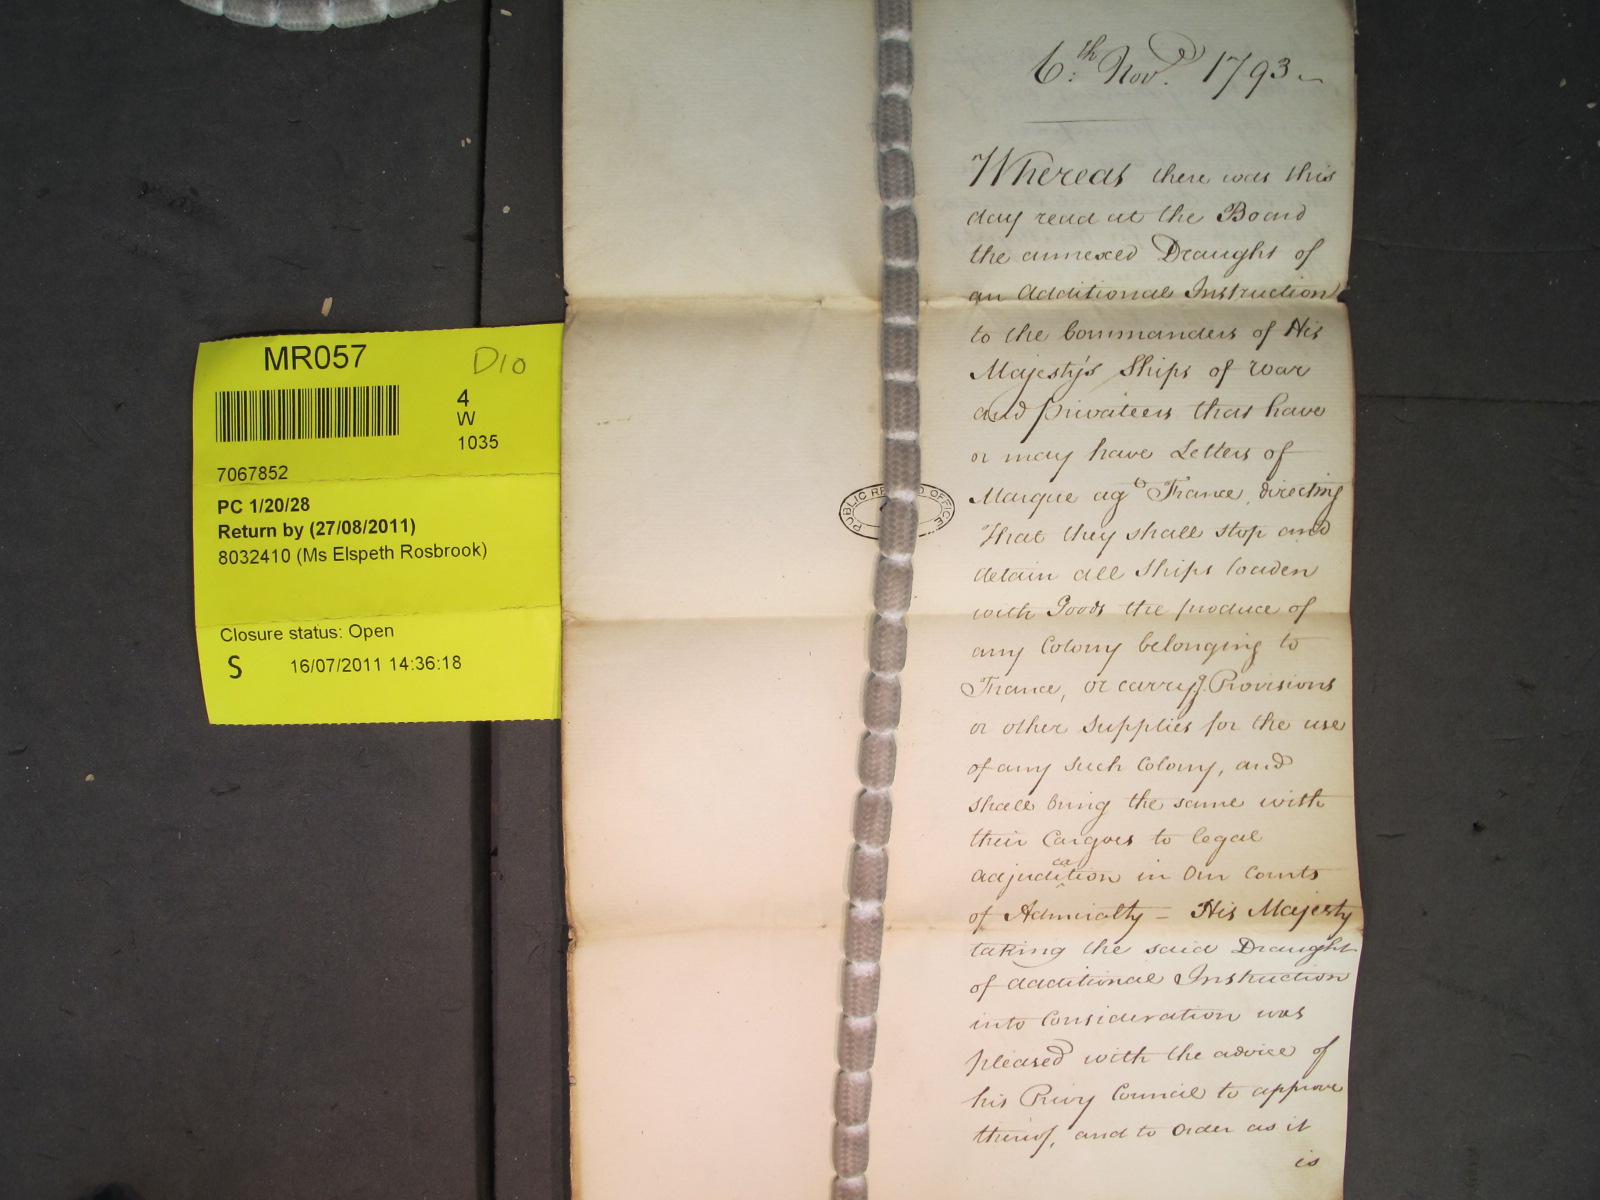 MR057
D10
4
W
1035
7067852
PC 1/20/28
Return by (27/08/2011)
8032410 (Ms Elspeth Rosbrook)
Closure status: Open
S
16/07/2011 14:36:18
PUBLIC RE D OFFICE
6th Novr. 1793
Whereas there was this
day read at the Board
the annexed Draught of
an Additional Instruction
to the Commanders of His
Majesty's Ships of War
and privateers that have
or may have Letters of
Marque agt France, directing
That they shall stop and
detain all Ships loaden
with Goods the produce of
any Colony belonging to
France, or carryg. Provisions
or other Supplies for the use
of any such Colony, and
shall bring the same with
their Cargoes to legal
adjudication in Our Courts
of Admiralty – His Majesty
taking the said Draught
of additional Instruction
into Consideration was
pleased with the advice of
his Privy Council to approve
thereof, and to Order as it
is